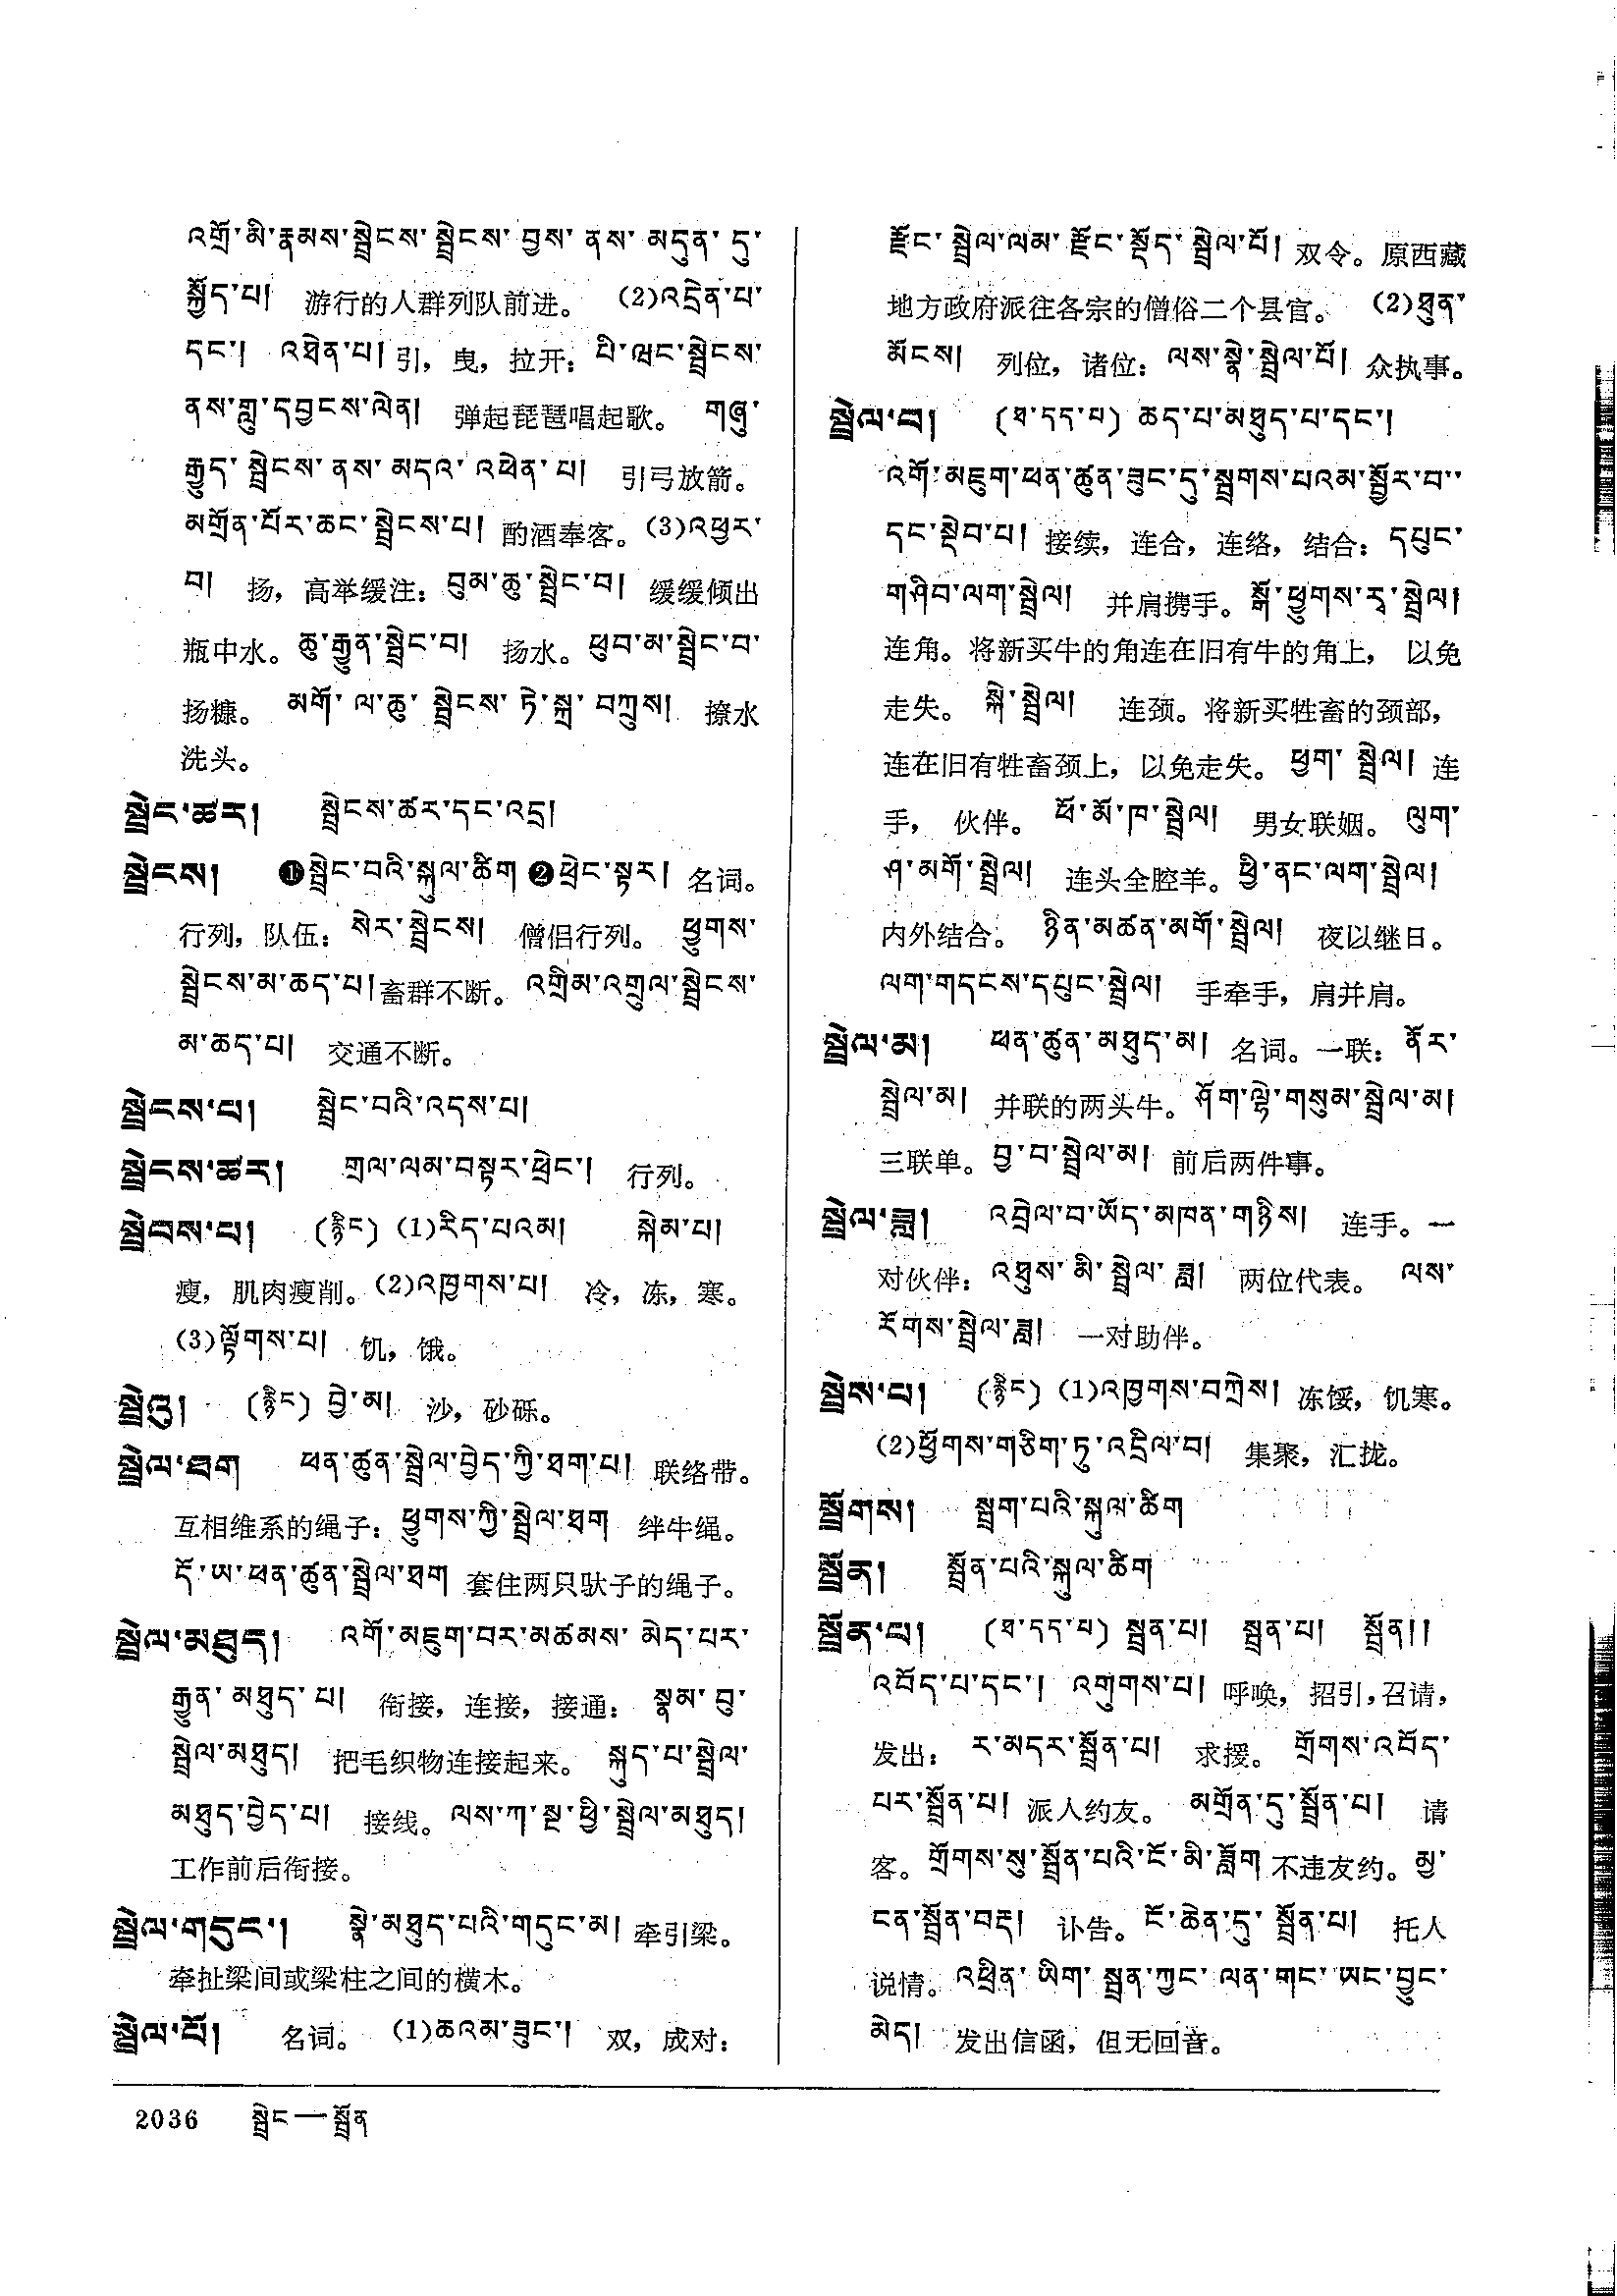 འགྲོ་མི་རྣམས་སྦྲེངས་སྦྲེངས་བྱས་ནས་མདུན་དུ་
སྐྱོད་པ། 游行的人群列队前进。 (2)འདྲེན་པ་
དང་། འཐེན་པ། 引，曳，拉开：པི་ཝང་སྦྲེངས་
ནས་གླུ་དབྱངས་ལེན། 弹起琵琶唱起歌。 གཞུ་
རྒྱུད་སྦྲེངས་ནས་མདའ་འཕེན་པ། 引弓放箭。
མགྲོན་པོར་ཆང་སྦྲེངས་པ། 酌酒奉客。(3)འཕྱར་
བ། 扬，高举缓注：བུམ་ཆུ་སྦྲེང་བ། 缓缓倾出
瓶中水。ཆུ་རྒྱུན་སྦྲེང་བ། 扬水。ཕུབ་མ་སྦྲེང་བ་
扬糠。 མགོ་ལ་ཆུ་སྦྲེངས་ཏེ་སྐྲ་བཀྲུས། 撩水
洗头。
སྦྲེང་ཚར། སྦྲེངས་ཚར་དང་འདྲ།
སྦྲེངས། ❶སྦྲེང་བའི་སྐུལ་ཚིག ❷ཕྲེང་སྟར། 名词。
行列，队伍：སེར་སྦྲེངས། 僧侣行列。 ཕྱུགས་
སྦྲེངས་མ་ཆད་པ། 畜群不断。འགྲིམ་འགྲུལ་སྦྲེངས་
མ་ཆད་པ། 交通不断。
སྦྲེངས་པ། སྦྲེང་བའི་འདས་པ།
སྦྲེངས་ཚར། གྲལ་ལམ་བསྟར་ཕྲེང་། 行列。
སྦྲེབས་པ། (རྙིང) (1)རིད་པའམ། སྐེམ་པ།
瘦，肌肉瘦削。(2)འཁྱགས་པ། 冷，冻，寒。
(3)ལྟོགས་པ། 饥，饿。
སྦྲེའུ། (རྙིང) བྱེ་མ། 沙，砂砾。
སྦྲེལ་ཐག ཕན་ཚུན་སྦྲེལ་བྱེད་ཀྱི་ཐག་པ། 联络带。
互相维系的绳子：ཕྱུགས་ཀྱི་སྦྲེལ་ཐག 绊牛绳。
དོ་ཨ་ཕན་ཚུན་སྦྲེལ་ཐག 套住两只驮子的绳子。
སྦྲེལ་མཐུད། འགོ་མཇུག་བར་མཚམས་མེད་པར་
རྒྱུན་མཐུད་པ། 衔接，连接，接通： སྣམ་བུ་
སྦྲེལ་མཐུད། 把毛织物连接起来。 སྐུད་པ་སྦྲེལ་
མཐུད་བྱེད་པ། 接线。ལས་ཀ་སྔ་ཕྱི་སྦྲེལ་མཐུད།
工作前后衔接。
སྦྲེལ་གདུང་། སྣེ་མཐུད་པའི་གདུང་མ། 牵引梁。
牵扯梁间或梁柱之间的横木。
སྦྲེལ་པོ། 名词。 (1)ཆའམ་ཟུང་། 双，成对：
རྫོང་སྦྲེལ་ལམ་རྫོང་སྡོད་སྦྲེལ་པོ། 双令。原西藏
地方政府派往各宗的僧俗二个县官。 (2)ཐུན་
མོངས། 列位，诸位：ལས་སྣེ་སྦྲེལ་པོ། 众执事。
སྦྲེལ་བ། (ཐ་དད་པ) ཆད་པ་མཐུད་པ་དང་།
འགོ་མཇུག་ཕན་ཚུན་ཟུང་དུ་སྦྲགས་པའམ་སྦྱོར་བ་་
དང་སྡེབ་པ། 接续，连合，连络，结合：དཔུང་
གཤིབ་ལག་སྦྲེལ། 并肩携手。སྒོ་ཕྱུགས་རྭ་སྦྲེལ།
连角。将新买牛的角连在旧有牛的角上， 以免
走失。 སྐེ་སྦྲེལ། 连颈。将新买牲畜的颈部，
连在旧有牲畜颈上，以免走失。 ཕྱག་སྦྲེལ། 连
手， 伙伴。 ཕོ་མོ་ཁ་སྦྲེལ། 男女联姻。 ལུག་
ཤ་མགོ་སྦྲེལ། 连头全腔羊。ཕྱི་ནང་ལག་སྦྲེལ།
内外结合。 ཉིན་མཚན་མགོ་སྦྲེལ། 夜以继日。
ལག་གདངས་དཔུང་སྦྲེལ། 手牵手，肩并肩。
སྦྲེལ་མ། ཕན་ཚུན་མཐུད་མ། 名词。一联：ནོར་
སྦྲེལ་མ། 并联的两头牛。ཤོག་ལྷེ་གསུམ་སྦྲེལ་མ།
三联单。བྱ་བ་སྦྲེལ་མ། 前后两件事。
སྦྲེལ་ཟླ། འབྲེལ་བ་ཡོད་མཁན་གཉིས། 连手。一
对伙伴：འཐུས་མི་སྦྲེལ་ཟླ། 两位代表。 ལས་
རོགས་སྦྲེལ་ཟླ། 一对助伴。
སྦྲེས་པ། (རྙིང) (1)འཁྱགས་བཀྲེས། 冻馁，饥寒。
(2)ཕྱོགས་གཅིག་ཏུ་འདྲིལ་བ། 集聚，汇拢。
སྦྲོགས། སྦྲག་པའི་སྐུལ་ཚིག
སྦྲོན། སྦྲོན་པའི་སྐུལ་ཚིག
སྦྲོན་པ། (ཐ་དད་པ) སྦྲན་པ། སྦྲན་པ། སྦྲོན།།
འབོད་པ་དང་། འགུགས་པ། 呼唤，招引，召请，
发出： ར་མདར་སྦྲོན་པ། 求援。 གྲོགས་འབོད་
པར་སྦྲོན་པ། 派人约友。 མགྲོན་དུ་སྦྲོན་པ། 请
客。གྲོགས་སུ་སྦྲོན་པའི་ངོ་མི་ཟློག 不违友约。མྱ་
ངན་སྦྲོན་བརྡ། 讣告。ངོ་ཆེན་དུ་སྦྲོན་པ། 托人
说情。འཕྲིན་ཡིག་སྦྲན་ཀྱང་ལན་གང་ཡང་བྱུང་
མེད། 发出信函，但无回音。
2036 སྦྲེང—སྦྲོན